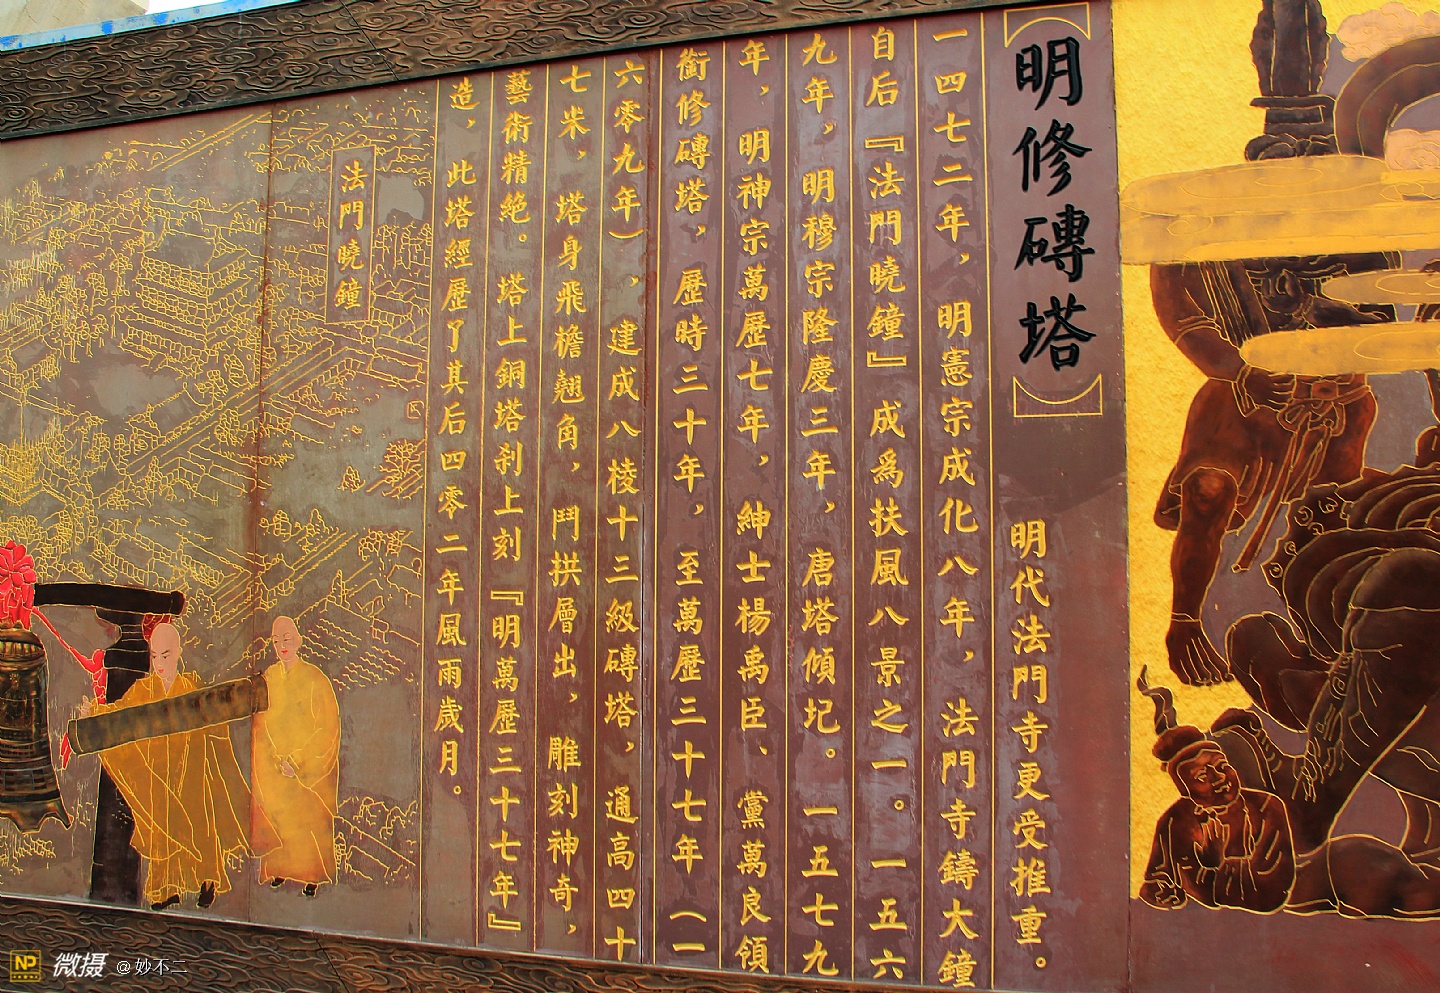 【明修磚塔】
明代法門寺更受推重。
一四七二年，明憲宗成化八年，法門寺鑄大鐘
自后『法門曉鐘』成爲扶風八景之一。一五六
九年，明穆宗隆慶三年，唐塔傾圮。一五七九
年，明神宗萬歷七年，紳士楊禹臣、黨萬良領
銜修磚塔，歷時三十年，至萬歷三十七年（一
六零九年），建成八棱十三級磚塔，通高四十
七米，塔身飛檐翹角，鬥拱層出，雕刻神奇，
藝術精絶。塔上銅塔刹上刻『明萬歷三十七年』
造，此塔經歷了其后四零二年風雨歲月。
法門曉鐘
NP 微摄 @妙不二